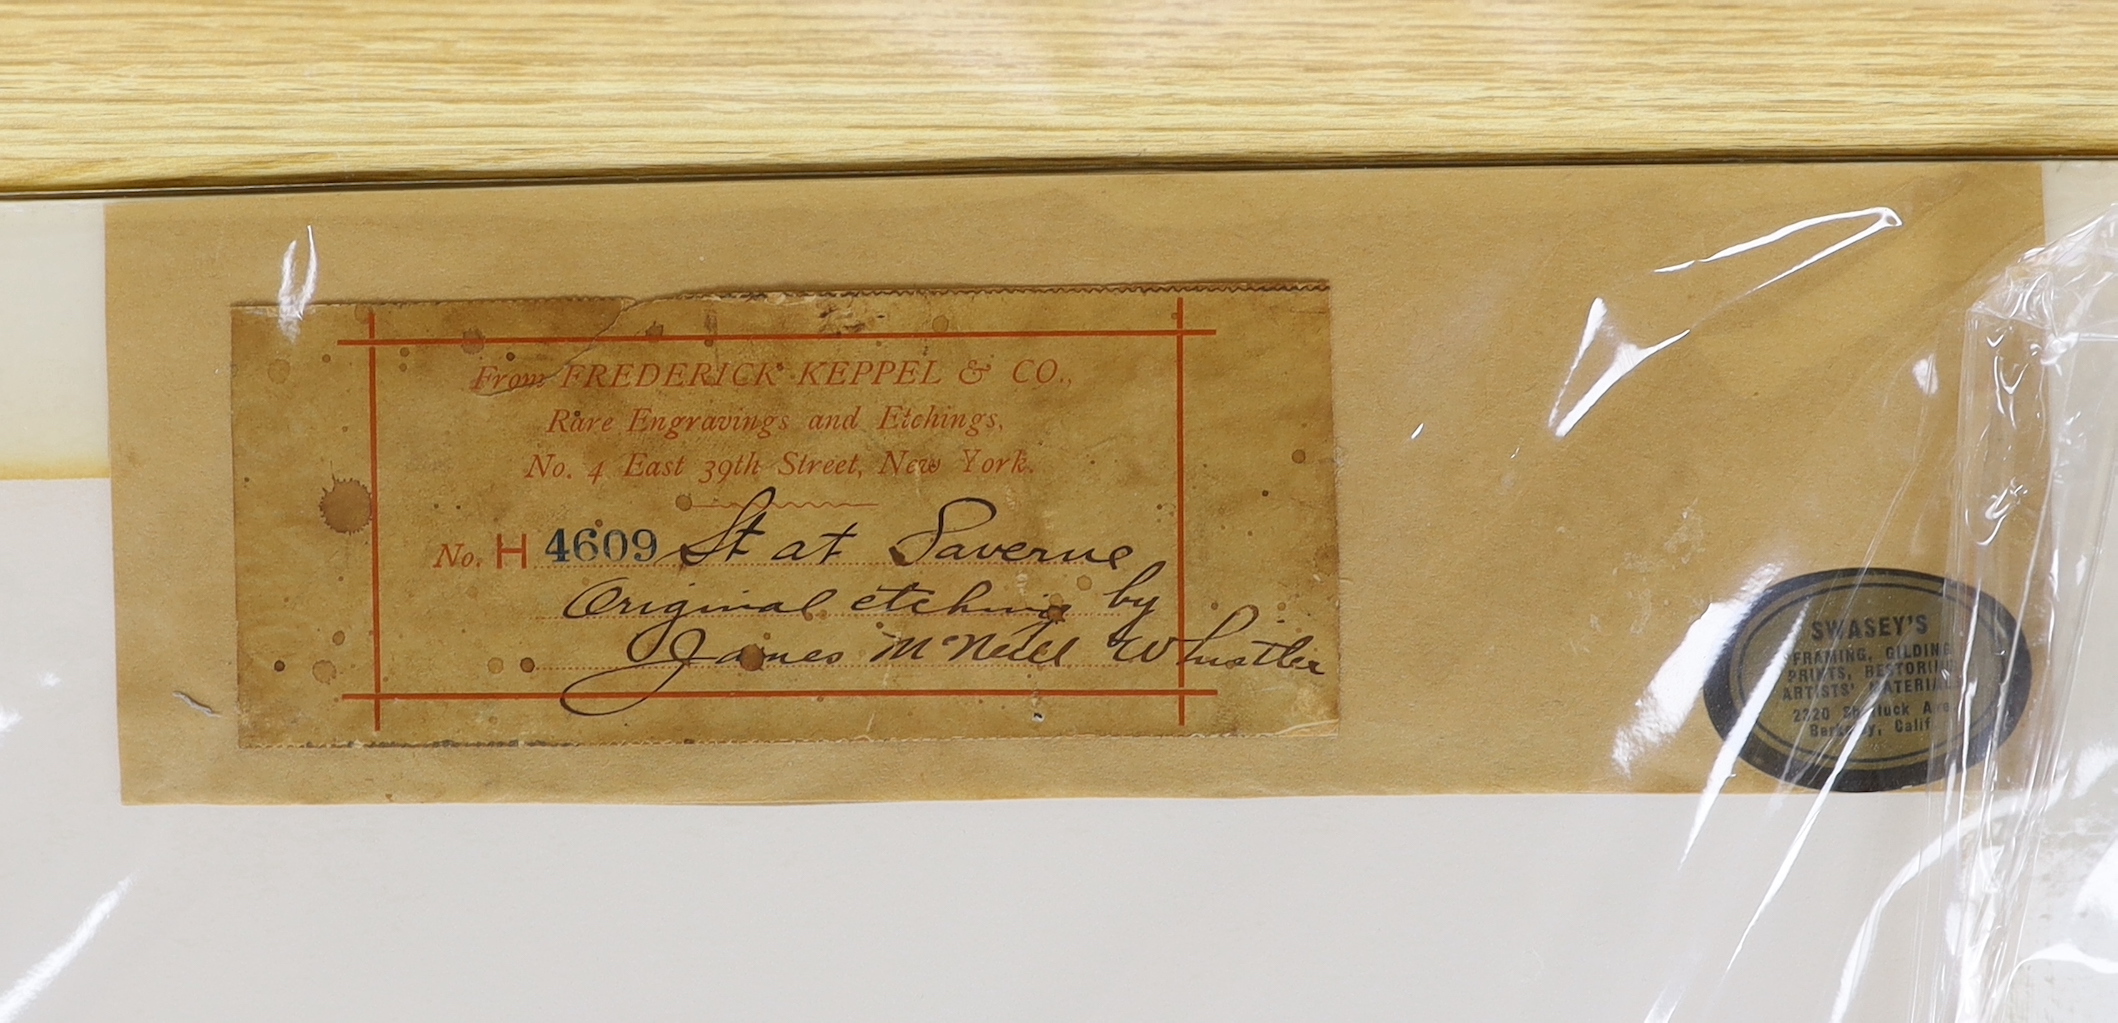 From FREDERICK KEPPEL & CO.,
Rare Engravings and Etchings,
No. 4 East 39th Street, New York.
No. H 4609 St at Saverne
Original etching by
James McNeill Whistler
SWASEY'S
FRAMING, GILDING
PRINTS, RESTORING
ARTISTS' MATERIALS
2220 Shattuck Ave
Berkeley, Calif